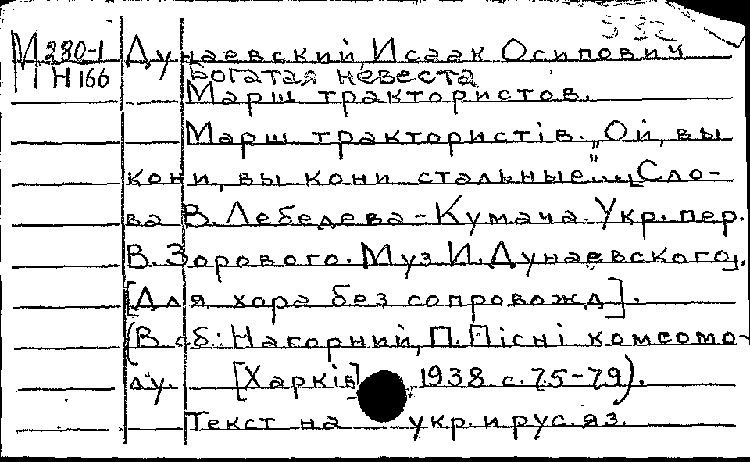 532
М280-1 Дунаевский, Исаак Осипович
Н166 Богатая невеста
Марш трактористов.
Марш трактористів. „Ой, вы
кони, вы кони стальные..." [Сло-
ва В. Лебедева-Кумача. Укр. пер.
В. Зорового. Муз. И. Дунаевского].
[Для хора без сопровожд].
(В сб.: Нагорний, П. Пісні комсомо-
лу. [Харків] 1938 с. 75-79).
Текст на укр. и рус. яз.